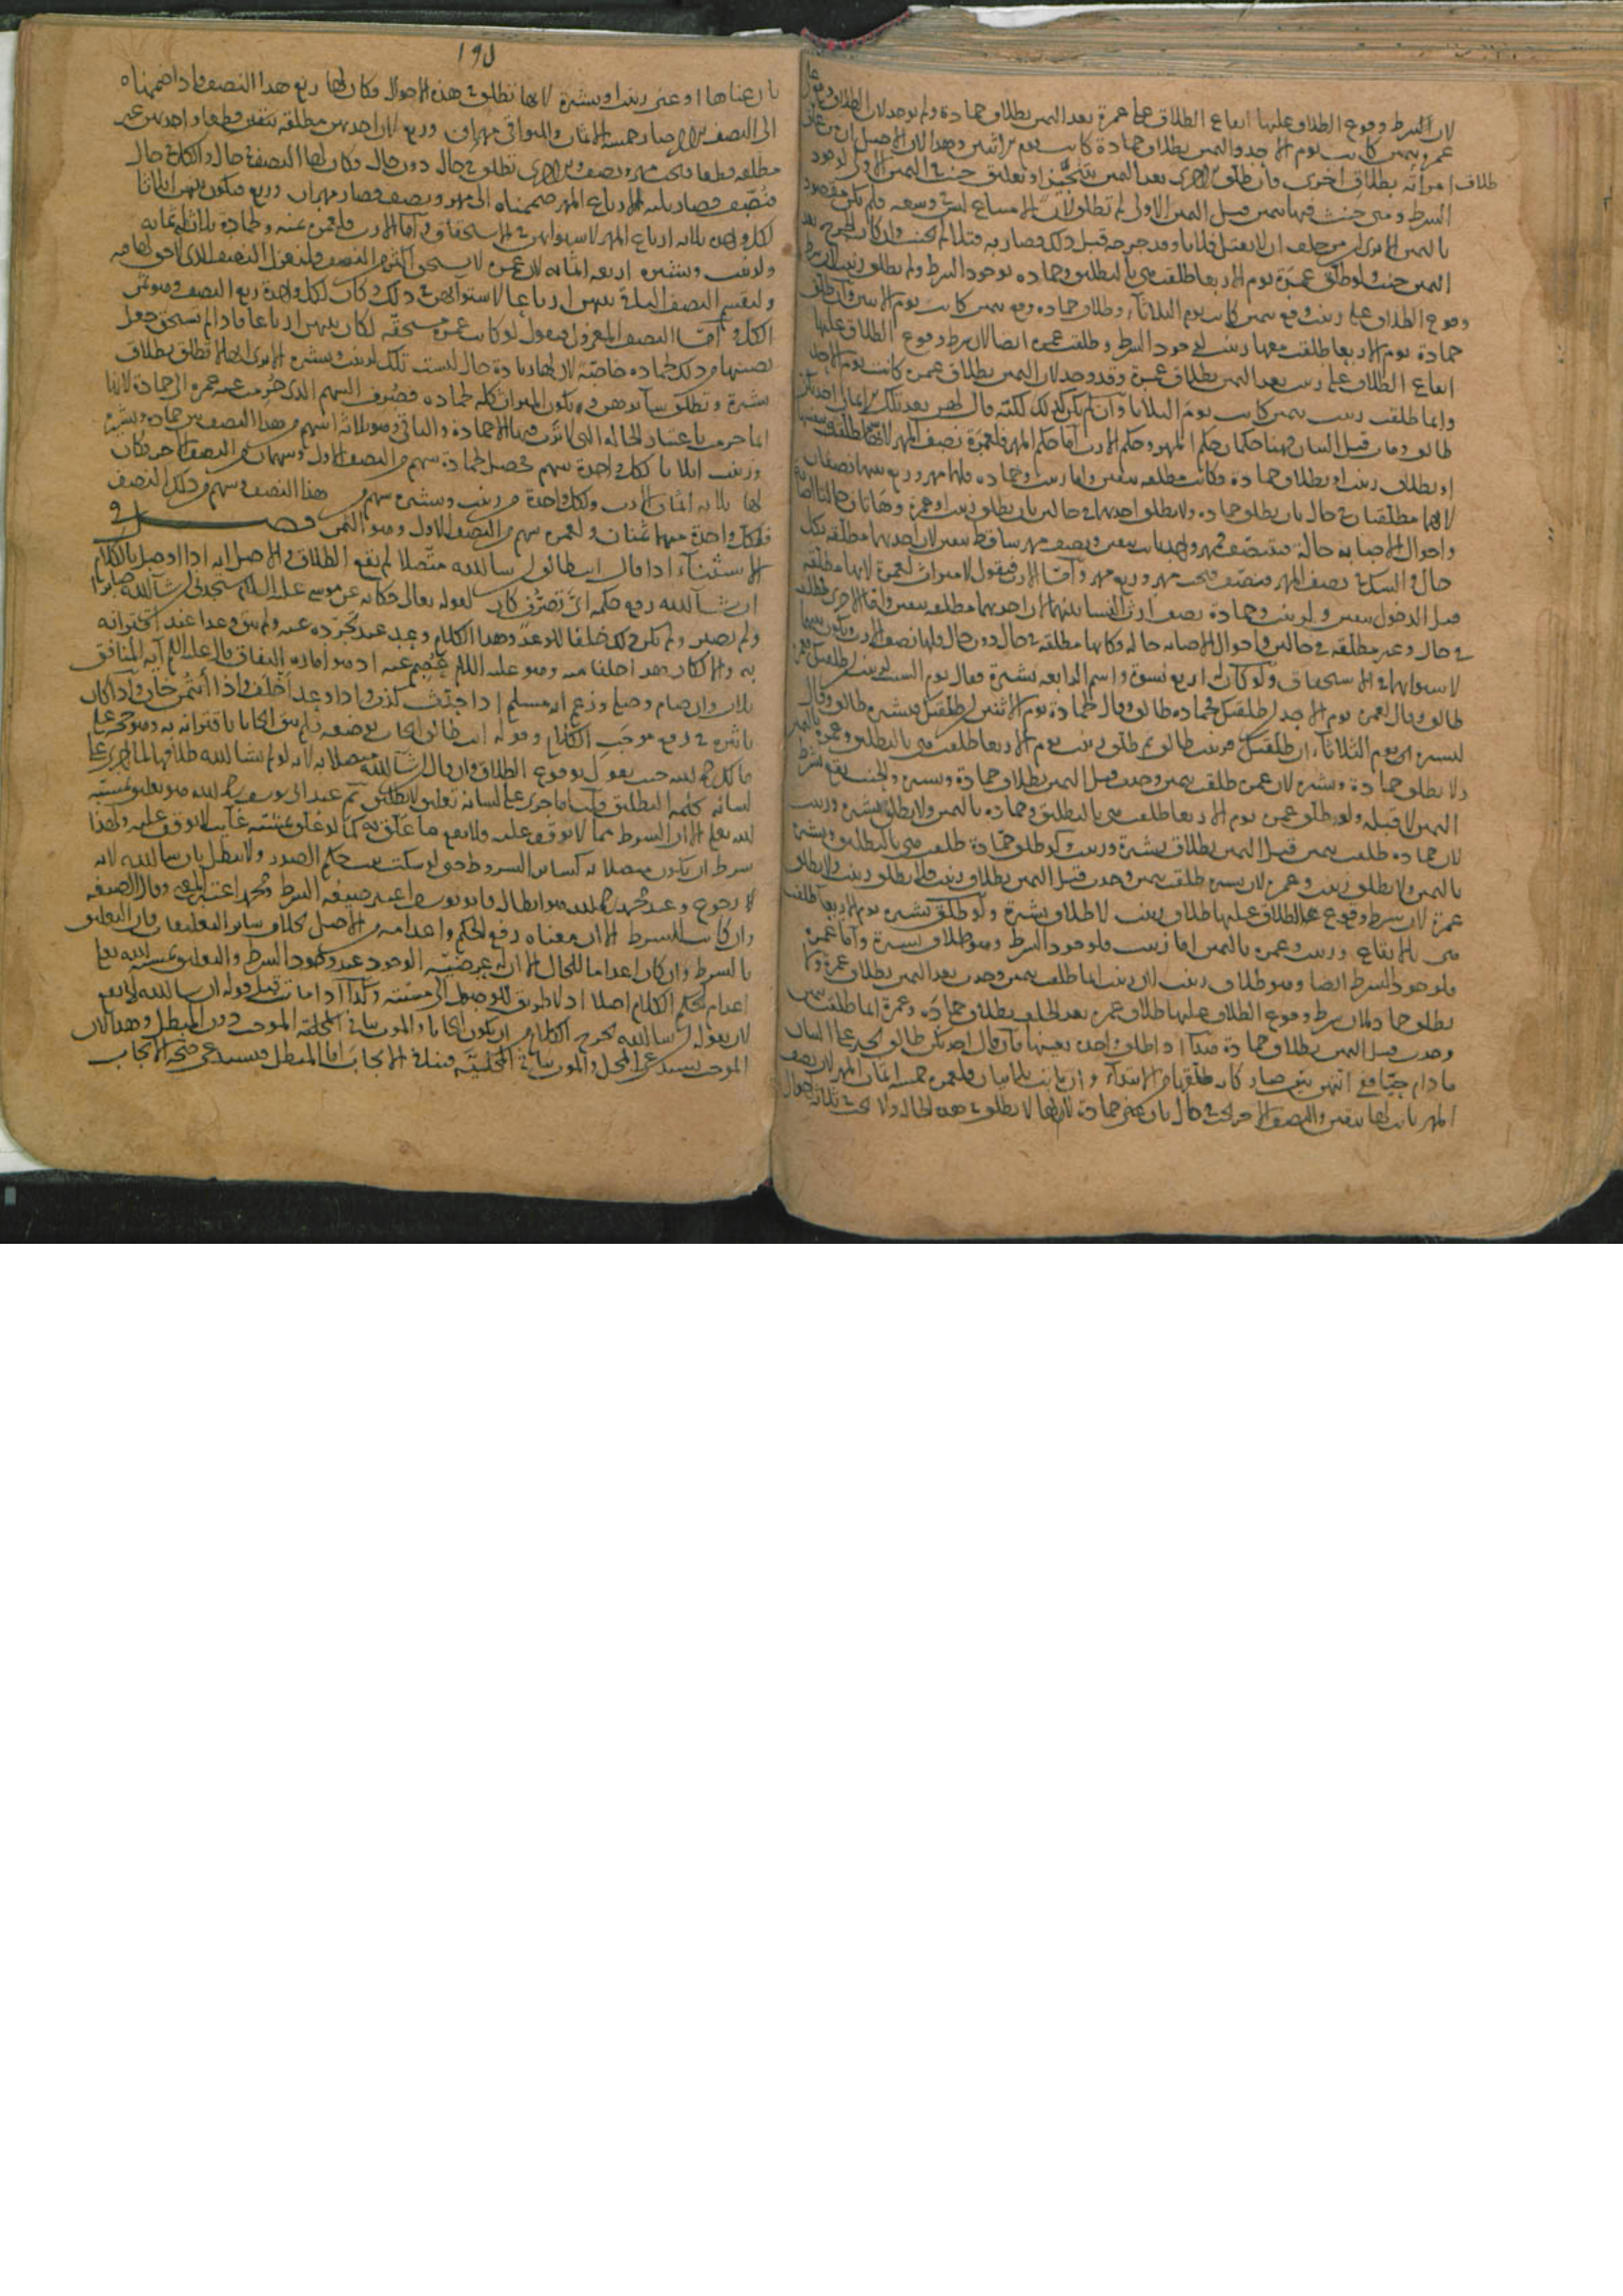 لان الشرط وقوع الطلاق عليها ايقاع الطلاق على عمرة بعد اليمين بطلاق حمادة ولم يوجد لان الطلاق
عمرة بيمين كانت يوم الاحد واليمين بطلاق حمادة كانت يوم الاثنين وهذا لان الاصل ان من علق
طلاق امراته بطلاق اخرى فان طلق الاخرى بعد اليمين بتنجيز او تعليق حنث في اليمين الاولى لوجود
الشرط ومتى حنث فيها بيمين قبل اليمين الاولى لم تطلق لان الامتناع ليس في وسعه فلم يكن مقصودا
باليمين الا يرى ان من حلف ان لا يقتل فلانا وقد جرحه قبل ذلك فصار به قتلا لم يحنث وان كان الجرح بعد
اليمين حنث ولو طلق عمرة يوم الاربعا طلقت هي بالتطليق وحمادة لوجود الشرط ولم يطلق زينب لان شرط
وقوع الطلاق على زينب وقع بيمين كانت يوم الثلاثاء وطلاق حمادة وقع بيمين كانت يوم الاثنين وان طلق
حمادة يوم الاربعا طلقت معها زينب لوجود الشرط وطلقت عمرة ايضا لان شرط وقوع الطلاق عليها
ايقاع الطلاق على زينب بعد اليمين بطلاق عمرة وقد وجد لان اليمين بطلاق عمرة كانت يوم الاحد
وانما طلقت زينب بيمين كانت يوم الثلاثا وان لم يكن كذلك لكنه قال لهن بعد تلك الايمان احديكن
طالق ومات قبل البيان فههنا حكمان حكم المهر وحكم الارث اما حكم المهر فلعمرة نصف المهر لانها طلقت بنفسها
او بطلاق زينب او بطلاق حمادة فكانت مطلقة بيقين واما زينب وحمادة فلهما مهر وربع بينهما نصفان
لانهما مطلقتان في حال بان يطلق حمادة ولا يطلق احدهما في حالين بان يطلق زينب او عمرة وهاتان حالتا الاصابة
واحوال الاصابة حالة
حال والشك في نصف المهر فينصف فيجب مهر وربع مهر واما الارث فنقول لا ميراث لعمرة لانها مطلقة
قبل الدخول بيقين ولزينب وحمادة نصف ارث النسا بينهما لان احديهما مطلقة بيقين واما الاخرى مطلقة
في حال وغير مطلقة في حالين واحوال الاصابة حالة وكانها مطلقة في حال دون حال فلها نصف الارث ويكون بينهما
لاستوائهما في الاستحقاق ولو كان له اربع نسوة واسم الرابعة بشرة فقال يوم السبت لزينب ان طلقتك فعمرة
طالق وقال لعمرة يوم الاحد ان طلقتك فحمادة طالق وقال لحمادة يوم الاثنين ان طلقتك فبشرة طالق وقال
لبشرة يوم الثلاثاء ان طلقتك فزينب طالق ثم طلق زينب يوم الاربعا طلقت هي بالتطليق وعمرة باليمين
ولا يطلق حمادة وبشرة لان عمرة طلقت بيمين وجدت قبل اليمين بطلاق حمادة وبشرة والحنث يقع بشرط
اليمين لا قبله ولو طلق عمرة يوم الاربعا طلقت هي بالتطليق وحمادة باليمين ولا يطلق بشرة وزينب
لان حمادة طلقت بيمين قبل اليمين بطلاق بشرة وزينب ولو طلق حمادة طلقت هي بالتطليق وبشرة
باليمين ولا يطلق زينب وعمرة لان بشرة طلقت بيمين وجدت قبل اليمين بطلاق زينب ولا يطلق زينب ولا يطلق
عمرة لان شرط وقوع الطلاق عليها طلاق زينب لا طلاق بشرة ولو طلق بشرة يوم الاربعا طلقت
هي بالايقاع وزينب وعمرة باليمين اما زينب فلوجود الشرط وهو طلاق بشرة واما عمرة
فلوجود الشرط ايضا وهو طلاق زينب لان زينب انما طلقت بيمين وجدت بعد اليمين بطلاق عمرة ولا
يطلق حمادة لان شرط وقوع الطلاق عليها طلاق عمرة بعد الحلف بطلاق حمادة وعمرة انما طلقت بيمين
وجدت قبل اليمين بطلاق حمادة هذا اذا طلق واحدة بعينها فان قال احديكن طالق يجبر على البيان
ما دام حيا فمن بين صار كانه طلقها في الابتداء وان مات قبل البيان فلعمرة خمسة اثمان المهر لان نصف
المهر ثابت لها بيقين والنصف الاخر يجب في حال بان يعني حمادة لانها لا يطلق في هذه الحالة ولا يجب في ثلاثة احوال
١٩٥
بان عناها او عنى زينب او بشرة لانها تطلق في هذه الاحوال فكان لها ربع هذا النصف فاذا ضممناه
الى النصف الاخر صار خمسة الاثمان وللبواقي مهران وربع لان احديهن مطلقة بيقين قطعا واحديهن غير
مطلقة قطعا فيجب مهر ونصف والاخرى تطلق في حال دون حال فكان لها النصف في حال والكل في حال
فتنصف فصار ثلثة الارباع المهر ضممناه الى مهر ونصف فصار مهران وربع فيكون بينهن اثلاثا
لكل واحدة ثلاثة ارباع المهر لاستوائهن في الاستحقاق واما الارث فلعمرة ثمنه ولحمادة ثلاثة اثمانه
ولزينب وبشرة اربعة اثمانه لان عمرة لا تستحق اكثر من النصف فلنعزل النصف الذي لا حق لها فيه
ولنقسم النصف الباقي بينهن ارباعا لاستوائهن في ذلك فكان لكل واحدة ربع النصف وهو ثمن
الكل واما النصف المعزول فنقول لو كانت عمرة مستحقة لكان بينهن ارباعا فاذا لم تستحق جعل
نصيبها من ذلك لحمادة خاصة لان لها زيادة حال ليست تلك لزينب وبشرة الا يرى انها لا تطلق بطلاق
بشرة وتطلق سائرهن فيكون الميراث كله لحمادة فصرف السهم الذي حرمت عنه عمرة الى حمادة لانها
انما حرمت باعتبار الحالة التي لا ترث فيها الا حمادة والباقي وهو ثلاثة اسهم من هذا النصف بين حمادة وبشرة
وزينب اثلاثا لكل واحدة سهم فحصل لحمادة سهم من النصف الاول وسهمان من النصف الاخر فكان
لها ثلاثة اثمان الارث ولكل واحدة من زينب وبشرة سهم من هذا النصف وسهم من ذلك النصف
فلكل واحدة منهما ثمنان ولعمرة سهم من النصف الاول وهو الثمن فصل في
الاستثناء اذا قال انت طالق ان شا الله متصلا لم يقع الطلاق والاصل انه اذا وصل بالكلام
ان شا الله رفع حكمه اي تصرف كان لقوله تعالى حكاية عن موسى عليه السلام ستجدني ان شاء الله صابرا
ولم يصبر ولم يكن ذلك خلفا للوعد وهذا الكلام وعد عند تجرده عنه ولم يبق وعدا عند اقترانه
به والا لكان هذا خلفا منه وهو عليه السلام عصم عنه اذ هو امارة النفاق قال عليه السلام اية المنافق
ثلاث وان صام وصلى وزعم انه مسلم اذا حدث كذب واذا وعد اخلف واذا ائتمن خان واذا كان
تاثيره في رفع موجب الكلام وقوله انت طالق ايجاب بوضعه فلم يبق ايجابا باقترانه به وهو حجة على
مالك رحمه الله حيث يقول بوقوع الطلاق وان قال ان شاء الله متصلا به لانه لو لم يشا الله طلاقها لما اجرى على
لسانه كلمة التطليق قلنا ما جرى على لسانه تعليق لا تطليق ثم عند ابي يوسف رحمه الله هو تعليق بمشية
الله تعالى الا ان الشرط مما لا يوقف عليه فلا يقع ما علق به كما لو علق بمشية غائب لا يوقف عليه ولهذا
شرط ان يكون متصلا به كسائر الشروط حتى لو سكت يثبت حكم الصدر ولا يبطل بان شا الله لانه
رجوع وعند محمد رحمه الله هو ابطال فابو يوسف اعتبر صيغة الشرط ومحمد اعتبر المعنى وقال الصيغة
وان كانت للشرط الا ان معناه رفع الحكم واعدامه من الاصل بخلاف سائر التعليقات فان التعليق
بالشرط وان كان اعداما للحال الا انه بعرضية الوجود عند وجود الشرط والتعليق بمشية الله تعالى
اعدام لحكم الكلام اصلا اذ لا طريق للوصول الى مشيته وكذا اذا ماتت قبل قوله ان شا الله لا يقع
لان بقوله ان شا الله يخرج الكلام من ان يكون ايجابا والموت ينافي المحلية الموجب دون المبطل وهذا لان
الموجب يستدعي المحل والموت ينافي المحلية فينافي الايجاب اما المبطل فيستدعي صحة الايجاب